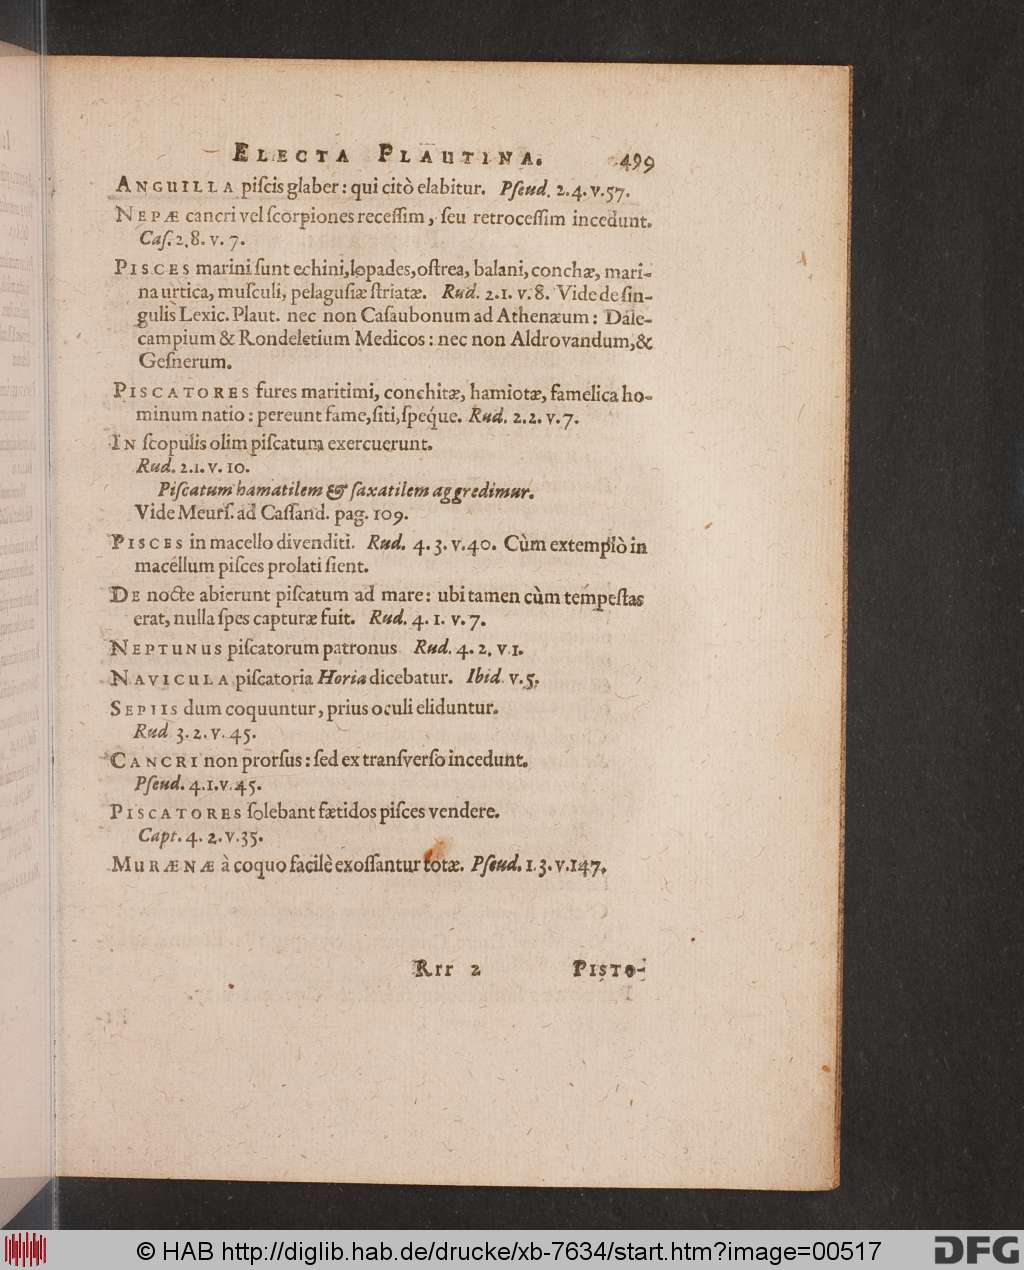 ELECTA PLAUTINA. 499
ANGUILLA piſcis glaber: qui citò elabitur. Pſeud. 2.4. v.57.
NEPÆ cancri vel ſcorpiones receſſim, ſeu retroceſſim incedunt.
Caſ. 2.8. v. 7.
PISCES marini ſunt echini, lopades, oſtrea, balani, conchæ, mari-
na urtica, muſculi, pelaguſiæ ſtriatæ. Rud. 2.1. v.8. Vide de ſin-
gulis Lexic. Plaut. nec non Caſaubonum ad Athenæum: Dale-
campium & Rondeletium Medicos: nec non Aldrovandum, &
Geſnerum.
PISCATORES fures maritimi, conchitæ, hamiotæ, famelica ho-
minum natio: pereunt fame, ſiti, ſpeq́ue. Rud. 2.2. v.7.
IN ſcopulis olim piſcatum exercuerunt.
Rud. 2.1. v. 10.
Piſcatum hamatilem & ſaxatilem aggredimur.
Vide Meurſ. ad Caſſand. pag. 109.
PISCES in macello divenditi. Rud. 4. 3. v.40. Cùm extemplò in
macellum piſces prolati ſient.
DE nocte abierunt piſcatum ad mare: ubi tamen cùm tempeſtas
erat, nulla ſpes capturæ fuit. Rud. 4. 1. v. 7.
NEPTUNUS piſcatorum patronus. Rud. 4. 2. v 1.
NAVICULA piſcatoria Horia dicebatur. Ibid. v. 5.
SEPIIS dum coquuntur, prius oculi eliduntur.
Rud 3. 2. v. 45.
CANCRI non prorſus: ſed ex tranſverſo incedunt.
Pſeud. 4.1. v. 45.
PISCATORES ſolebant fœtidos piſces vendere.
Capt. 4. 2. v.35.
MURÆNÆ à coquo facilè exoſſantur totæ. Pſeud. 1.3. v.147.
Rrr 2 PISTO-
© HAB http://diglib.hab.de/drucke/xb-7634/start.htm?image=00517
DFG